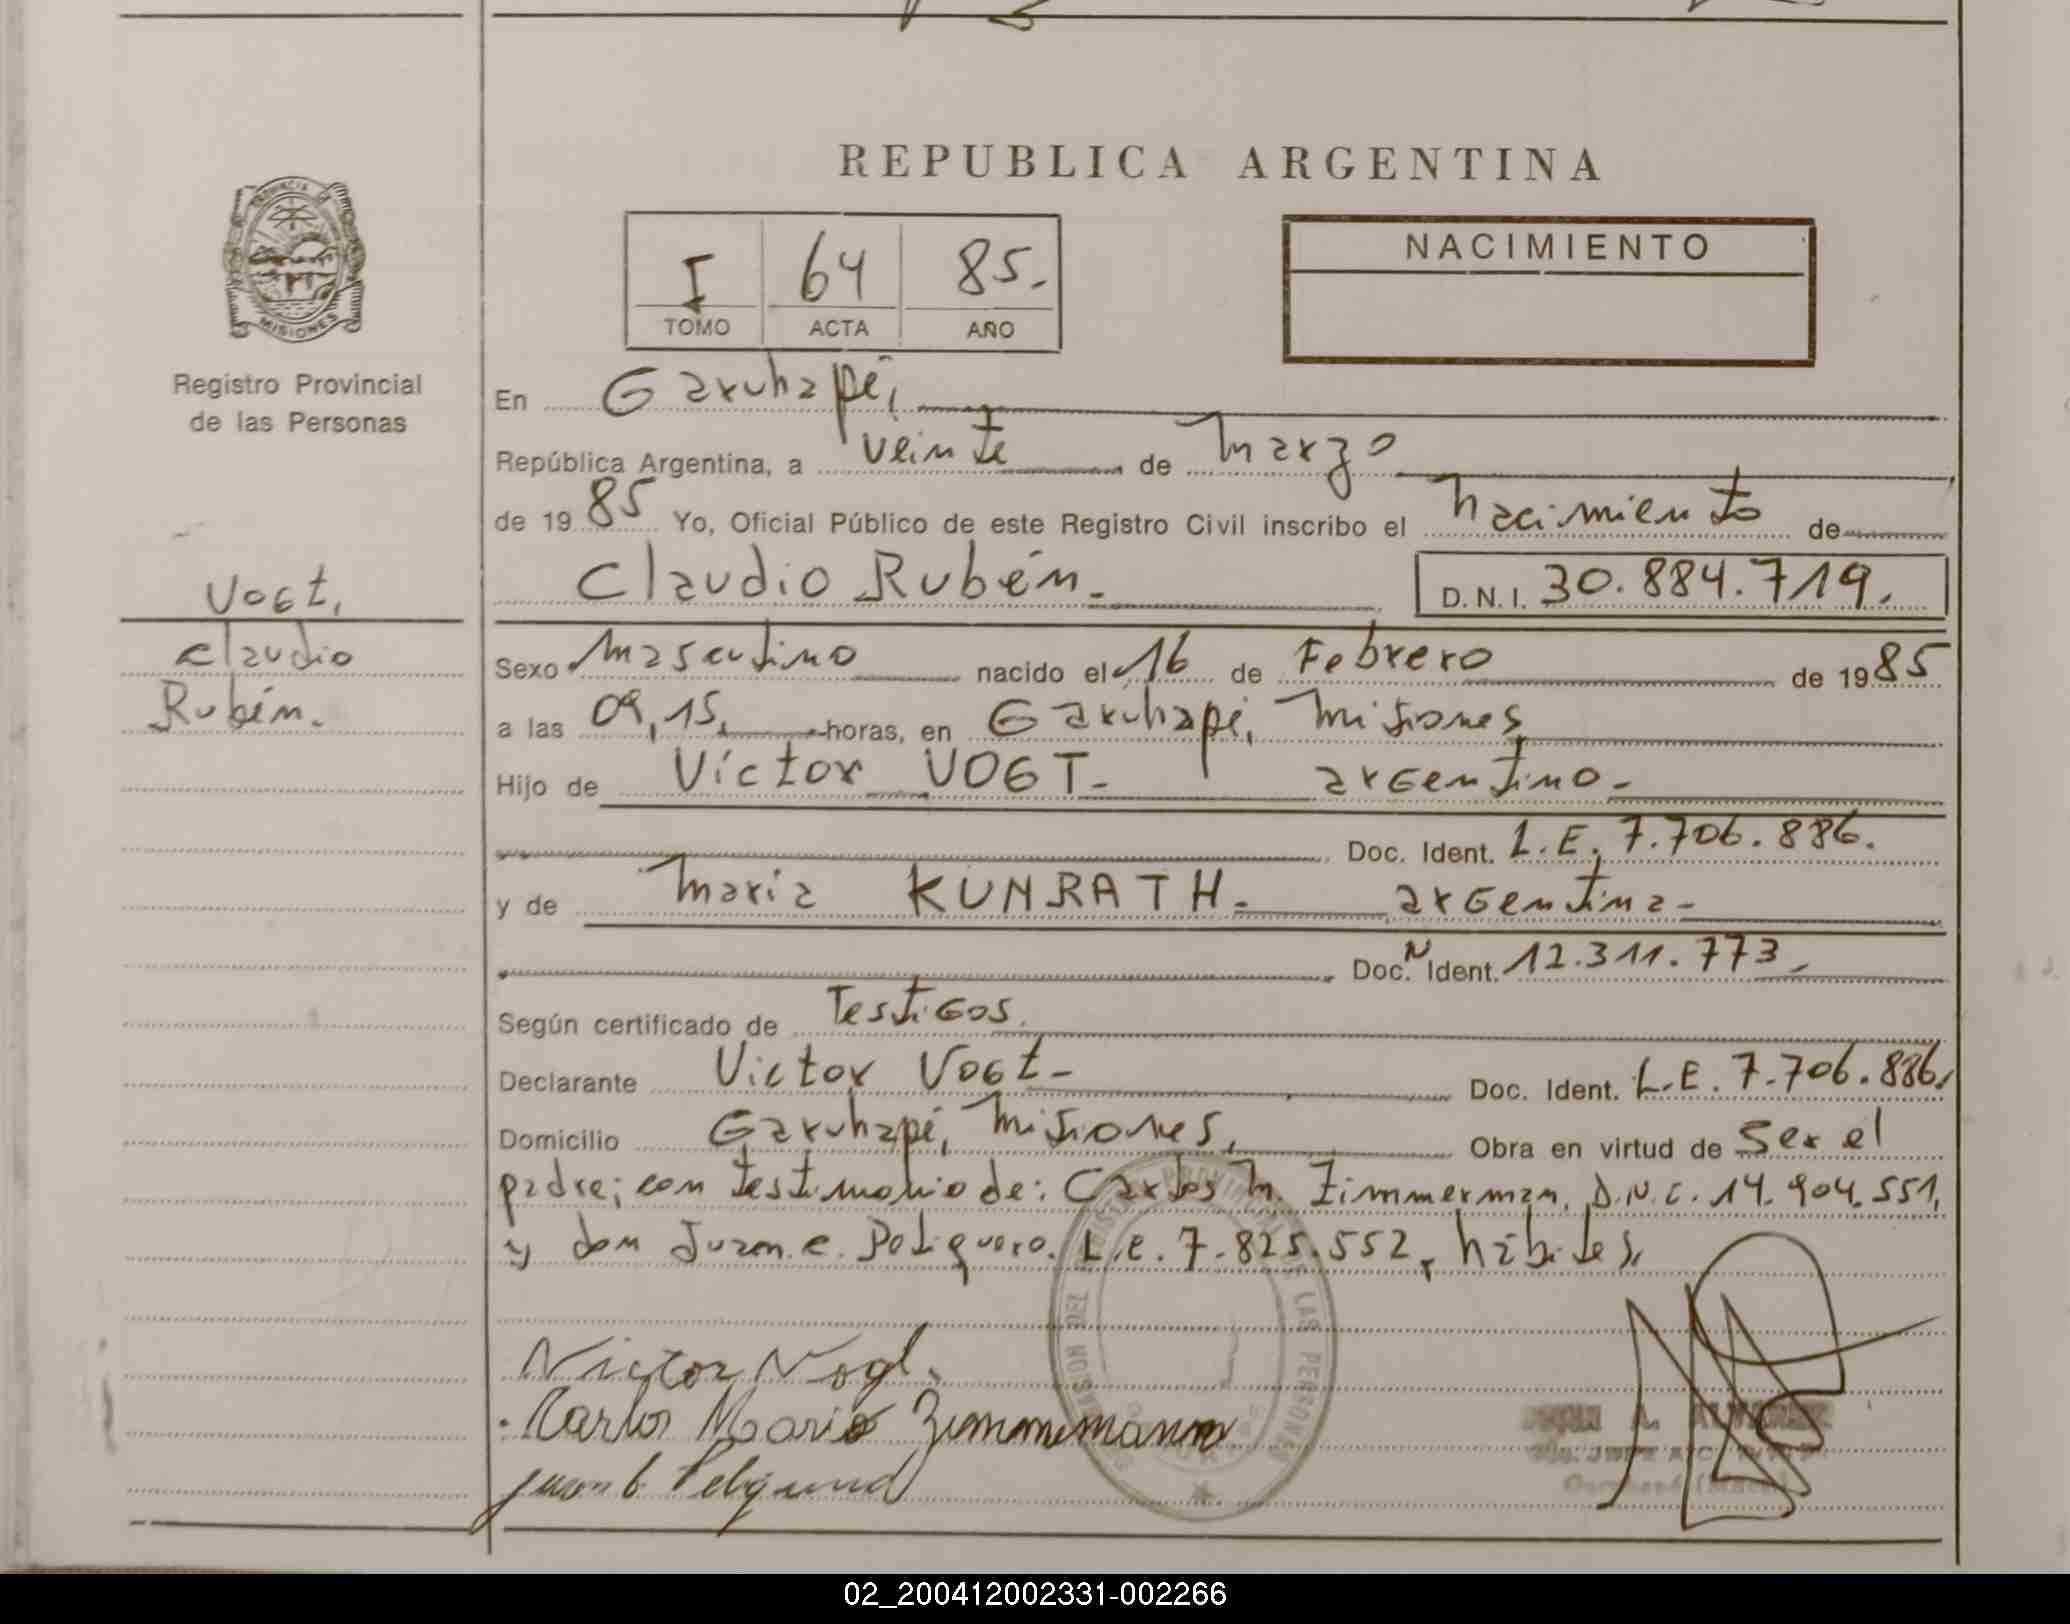 REPUBLICA ARGENTINA
PROVINCIA
MISIONES
Registro Provincial
de las Personas
I 64 85.
TOMO ACTA AÑO
NACIMIENTO
En Garuhapé,
República Argentina, a veinte de Marzo
de 1985 Yo, Oficial Público de este Registro Civil inscribo el nacimiento de
Claudio Rubén. D.N.I. 30.884.719.
Vogt,
Claudio
Rubén.
Sexo Masculino nacido el 16 de Febrero de 1985
a las 09,15, horas, en Garuhapé, Misiones
Hijo de Víctor VOGT- argentino-
Doc. Ident. L.E. 7.706.886.
y de Maria KUNRATH. argentina-
Doc. N Ident. 12.311.773
Según certificado de Testigos.
Declarante Victor Vogt- Doc. Ident. L.E. 7.706.886.
Domicilio Garuhapé, Misiones, Obra en virtud de ser el
padre; con testimonio de: Carlos M. Zimmerman, D.N.I. 14.904.551,
y don Juan.e. L.e. 7.825.552, hábiles,
Victor Vogt.
Carlos Mario Zimmermann
DEL PROVINCIAL DE LAS PERSONAS
A. ALVAREZ
02_200412002331-002266